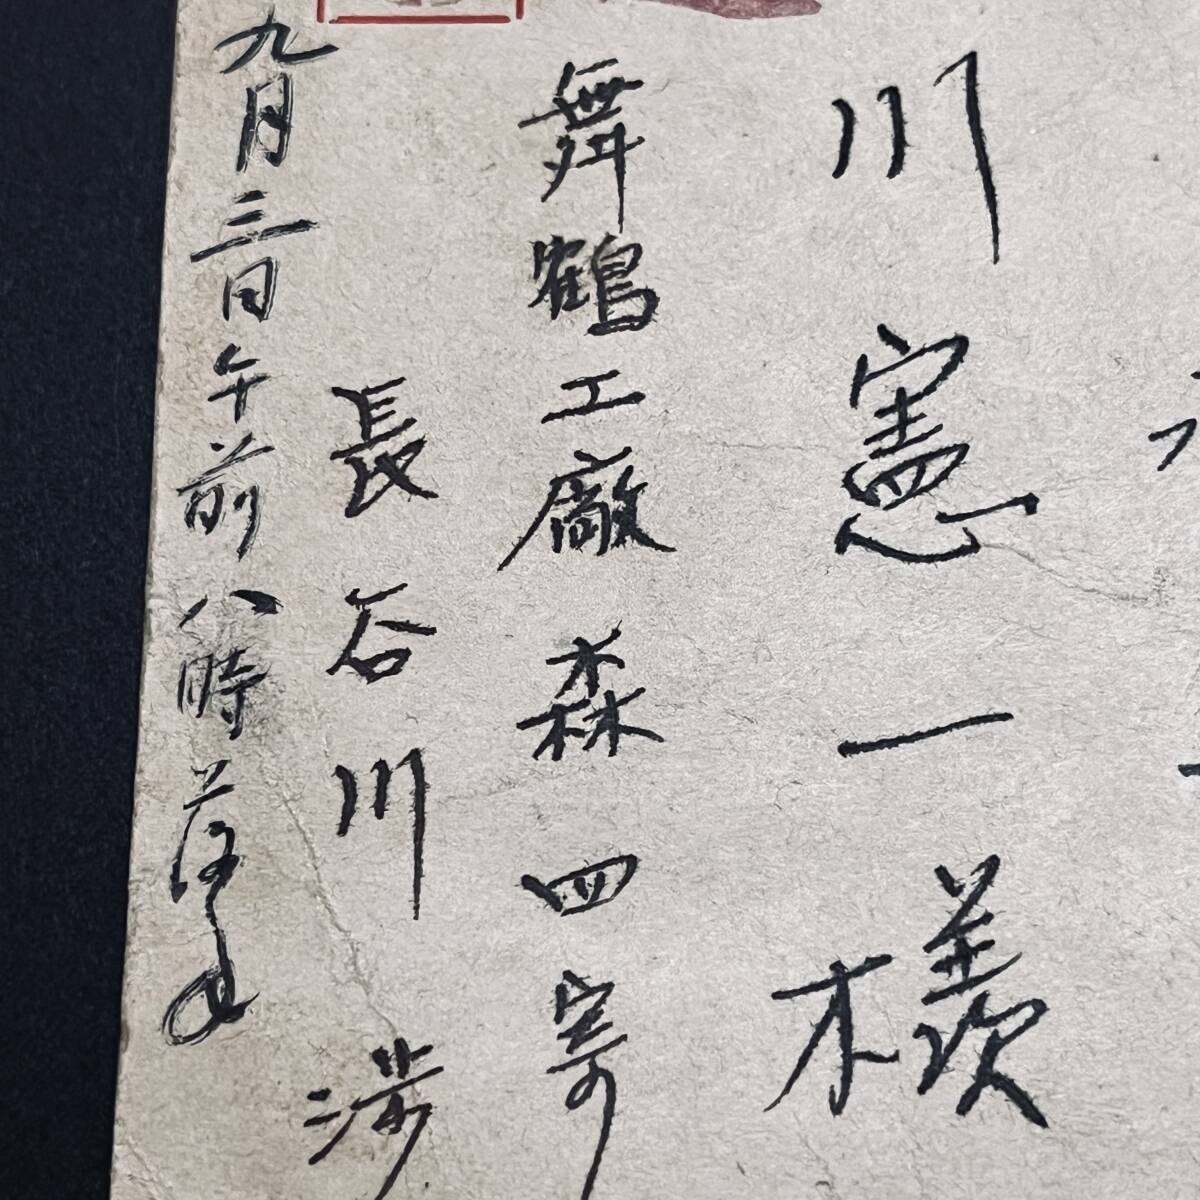 川憲一様
舞鶴工廠森四寄
長谷川渉
九月三日午前八時落手